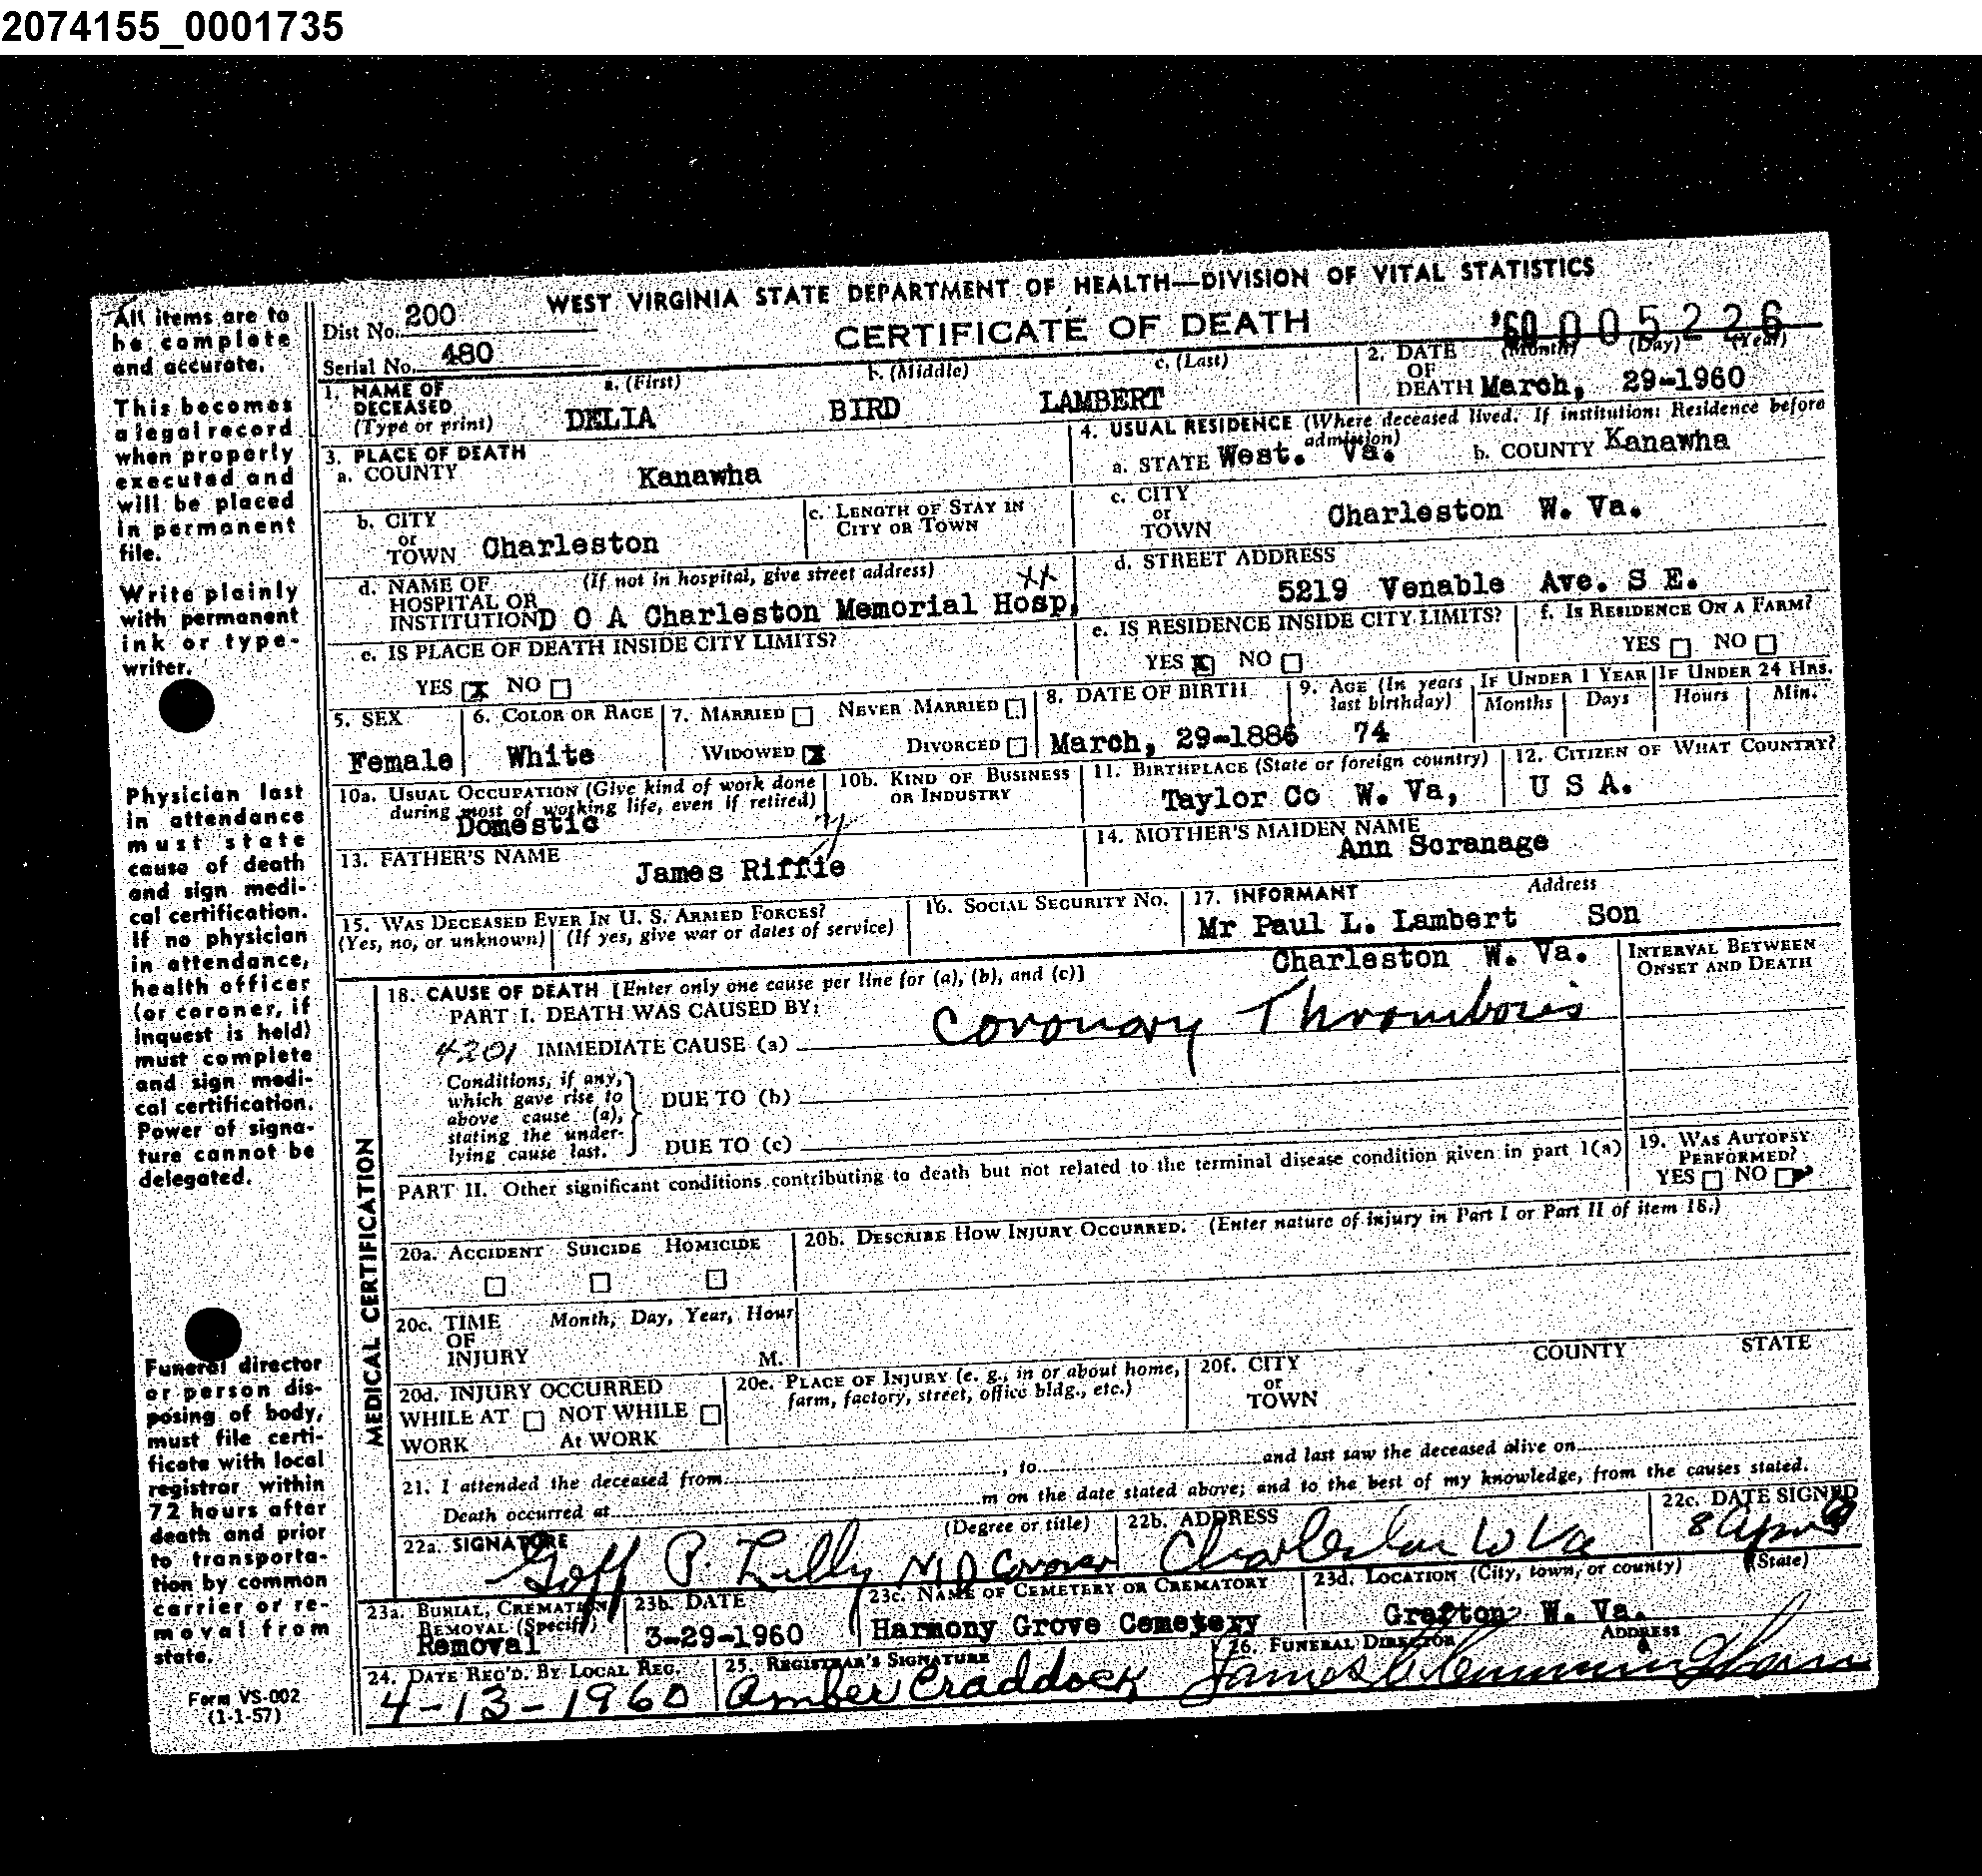 2074155_0001735
WEST VIRGINIA STATE DEPARTMENT OF HEALTH—DIVISION OF VITAL STATISTICS
CERTIFICATE OF DEATH
Dist No. 200
Serial No. 480
'60 005226
All items are to
be complete
and accurate.
This becomes
a legal record
when properly
executed and
will be placed
in permanent
file.
Write plainly
with permanent
ink or type-
writer.
Physician last
in attendance
must state
cause of death
and sign medi-
cal certification.
If no physician
in attendance,
health officer
(or coroner, if
inquest is held)
must complete
and sign medi-
cal certification.
Power of signa-
ture cannot be
delegated.
Funeral director
or person dis-
posing of body,
must file certi-
ficate with local
registrar within
72 hours after
death and prior
to transporta-
tion by common
carrier or re-
moval from
state.
Form VS-002
(1-1-57)
1. NAME OF DECEASED (Type or print)
a. (First) b. (Middle) c. (Last)
DELIA BIRD LAMBERT
2. DATE OF DEATH (Month) (Day) (Year)
March, 29-1960
3. PLACE OF DEATH
a. COUNTY Kanawha
4. USUAL RESIDENCE (Where deceased lived. If institution: Residence before admission)
a. STATE West. Va. b. COUNTY Kanawha
b. CITY or TOWN Charleston
c. LENGTH OF STAY IN CITY OR TOWN
c. CITY or TOWN Charleston W. Va.
d. NAME OF HOSPITAL OR INSTITUTION (If not in hospital, give street address)
D O A Charleston Memorial Hosp. xx
d. STREET ADDRESS
5219 Venable Ave. S E.
e. IS PLACE OF DEATH INSIDE CITY LIMITS?
YES X NO
e. IS RESIDENCE INSIDE CITY LIMITS?
YES X NO
f. IS RESIDENCE ON A FARM?
YES NO
5. SEX Female
6. COLOR OR RACE White
7. MARRIED NEVER MARRIED
WIDOWED X DIVORCED
8. DATE OF BIRTH
March, 29-1886
9. AGE (In years last birthday) 74
IF UNDER 1 YEAR Months Days
IF UNDER 24 HRS. Hours Min.
10a. USUAL OCCUPATION (Give kind of work done during most of working life, even if retired)
Domestic
10b. KIND OF BUSINESS OR INDUSTRY
11. BIRTHPLACE (State or foreign country)
Taylor Co W. Va,
12. CITIZEN OF WHAT COUNTRY?
U S A.
13. FATHER'S NAME
James Riffle
14. MOTHER'S MAIDEN NAME
Ann Soranage
15. WAS DECEASED EVER IN U. S. ARMED FORCES?
(Yes, no, or unknown) (If yes, give war or dates of service)
16. SOCIAL SECURITY NO.
17. INFORMANT Address
Mr Paul L. Lambert Son
Charleston W. Va.
MEDICAL CERTIFICATION
18. CAUSE OF DEATH [Enter only one cause per line for (a), (b), and (c)]
INTERVAL BETWEEN ONSET AND DEATH
PART I. DEATH WAS CAUSED BY:
4201 IMMEDIATE CAUSE (a) Coronary Thrombosis
Conditions, if any, which gave rise to above cause (a), stating the under-lying cause last.
DUE TO (b)
DUE TO (c)
PART II. Other significant conditions contributing to death but not related to the terminal disease condition given in part I(a)
19. WAS AUTOPSY PERFORMED?
YES NO
20a. ACCIDENT SUICIDE HOMICIDE
20b. DESCRIBE HOW INJURY OCCURRED. (Enter nature of injury in Part I or Part II of item 18.)
20c. TIME OF INJURY Month, Day, Year, Hour
M.
20d. INJURY OCCURRED
WHILE AT WORK NOT WHILE At WORK
20e. PLACE OF INJURY (e. g., in or about home, farm, factory, street, office bldg., etc.)
20f. CITY or TOWN COUNTY STATE
21. I attended the deceased from , to and last saw the deceased alive on
Death occurred at m on the date stated above; and to the best of my knowledge, from the causes stated.
22a. SIGNATURE (Degree or title)
Goff P. Lilly MD Coroner
22b. ADDRESS
Charleston W Va
22c. DATE SIGNED
8 Apr
23a. BURIAL, CREMATION REMOVAL (Specify)
Removal
23b. DATE
3-29-1960
23c. NAME OF CEMETERY OR CREMATORY
Harmony Grove Cemetery
23d. LOCATION (City, town, or county) (State)
Grafton W. Va.
24. DATE REC'D. BY LOCAL REG.
4-13-1960
25. REGISTRAR'S SIGNATURE
Amber Craddock
26. FUNERAL DIRECTOR ADDRESS
James C Cunningham